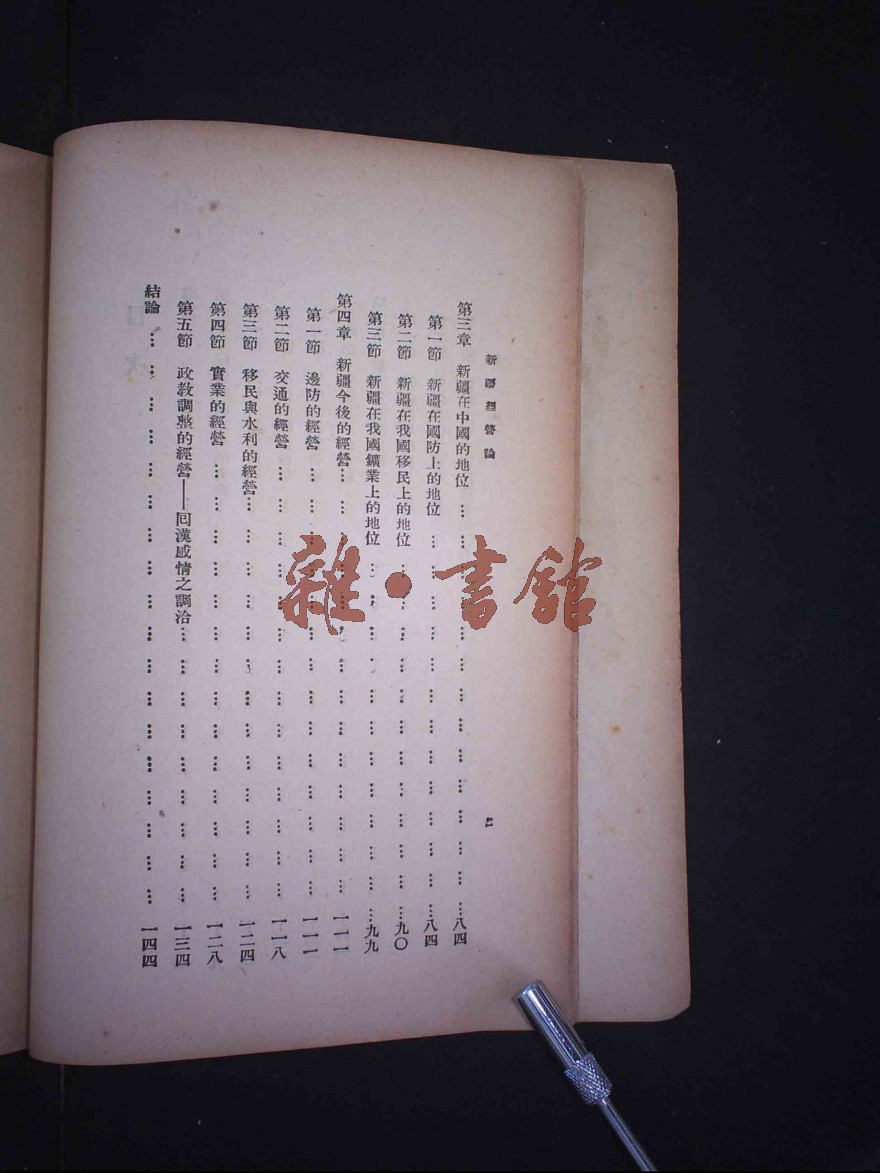 新疆經營論
第三章 新疆在中國的地位 … … … … … … … …八四
第一節 新疆在國防上的地位 … … … … … … …八四
第二節 新疆在我國移民上的地位 … … … … … …九〇
第三節 新疆在我國鑛業上的地位 … … … … … …九九
第四章 新疆今後的經營 … … … … … … … …一一一
第一節 邊防的經營 … … … … … … … …一一一
第二節 交通的經營 … … … … … … … …一一八
第三節 移民與水利的經營 … … … … … … …一二四
第四節 實業的經營 … … … … … … … …一二八
第五節 政教調整的經營——回漢感情之調洽 … … … … …一三四
結論 … … … … … … … … … …一四四
雜·書館